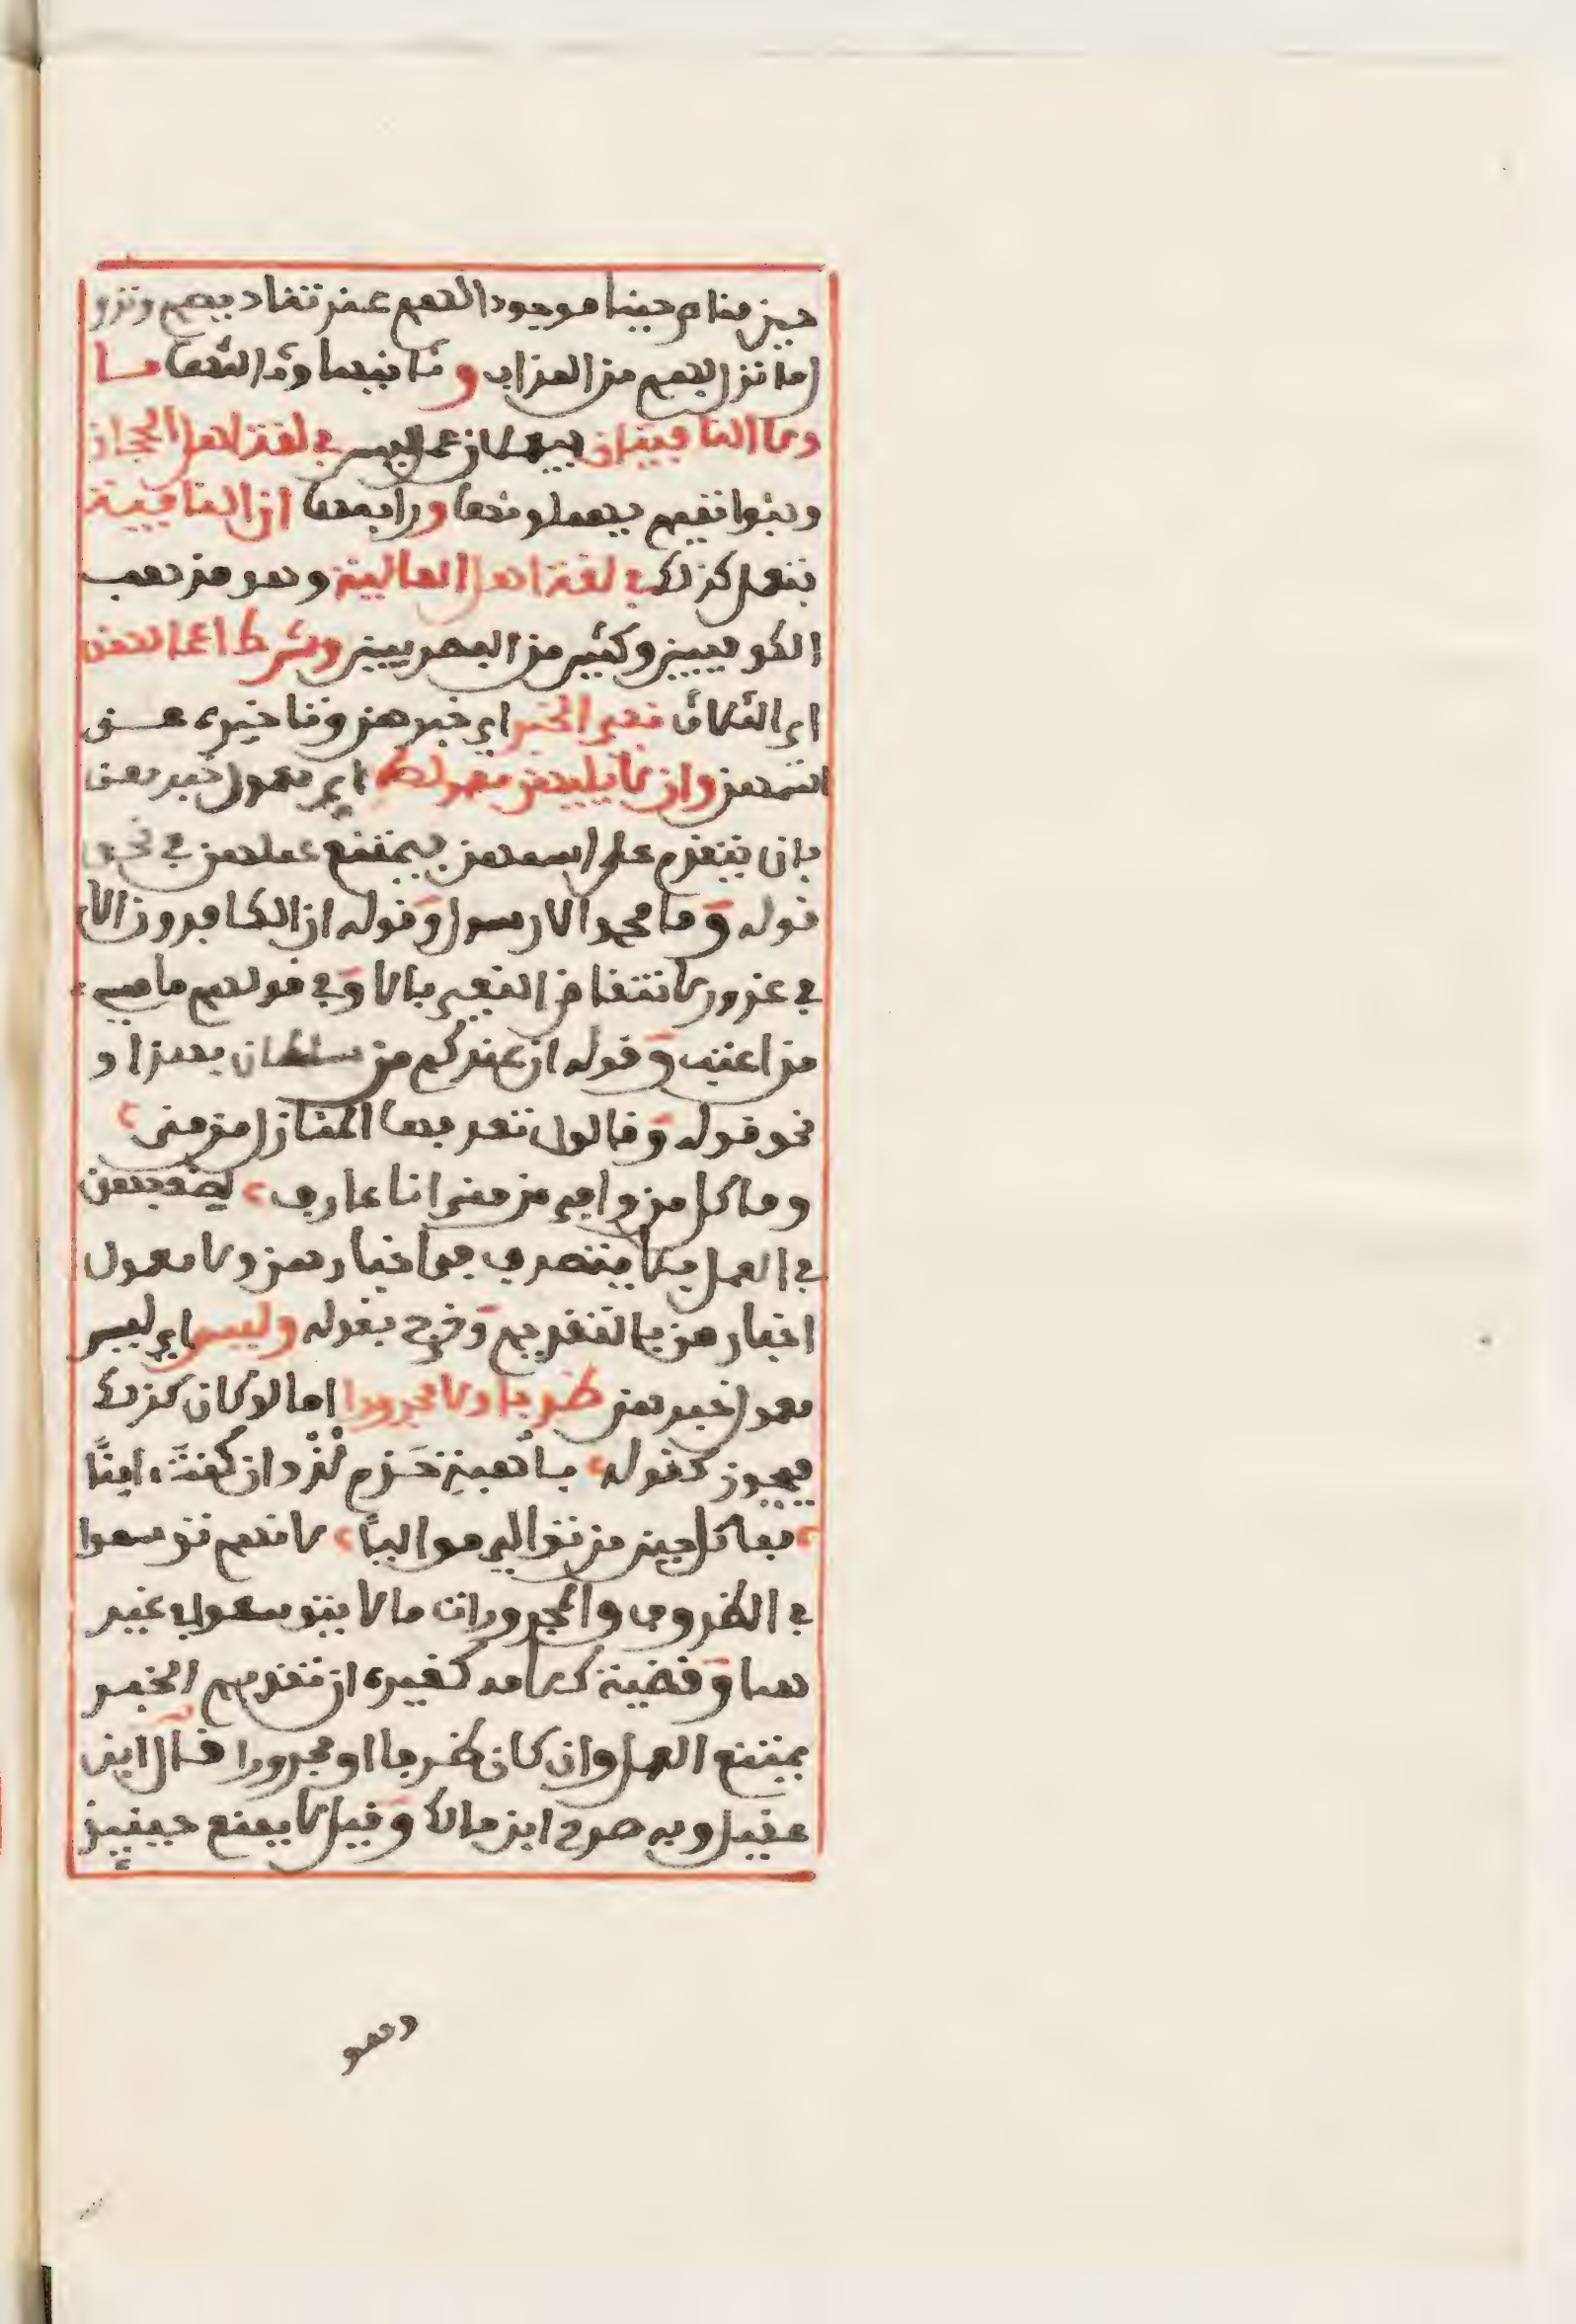 حين مناص حينا موجودا لهم عند تناديهم ونزو
ل ما نزل بهم من العذاب و ثانيها وثالثها ما
ولا النافيتان فيعملان عمل ليس في لغة اهل الحجاز
وبنوا تميم يهملونها ورابعها ان النافية
تعمل كذلك في لغة اهل العالية وهو مذهب
الكوفيين وكثير من البصريين وشرط اعمالهن
اي الثلاث نفي الخبر اي خبرهن وتاخيره عن
اسمهن وان لا يليهن معموله اي معمول خبرهن
بان يتقدم على اسمهن فيمتنع عملهن في نحو
قوله وما محمد الا رسول وقوله ان الكافرون الا
في غرور لانتقاض النفي بالا وفي قولهم ما مسيء
من اعتب وقوله ان عندكم من سلطان بهذا و
نحو قوله وقالوا تعرفها المنازل من منى
وما كل من وافى من منى انا عارف لضعفهن
في العمل فلا يتصرف في اخبارهن ولا معمول
اخبارهن بالتقديم وخرج بقوله وليس اي ليس
معمول خبرهن ظرفا ولا مجرورا اما لو كان كذلك
فيجوز كقوله باهبة حزم لذ وان كنت ءامنا
فما كل حين من توالي مواليا لانهم توسعوا
في الظروف والمجرورات ما لا يتوسعوا في غير
هما وقضية كلامه كغيره ان تقديم الخبر
يمنع العمل وان كان ظرفا او مجرورا قال ابن
عقيل وبه صرح ابن مالك وقيل لا يمنع حينئذ
وهو